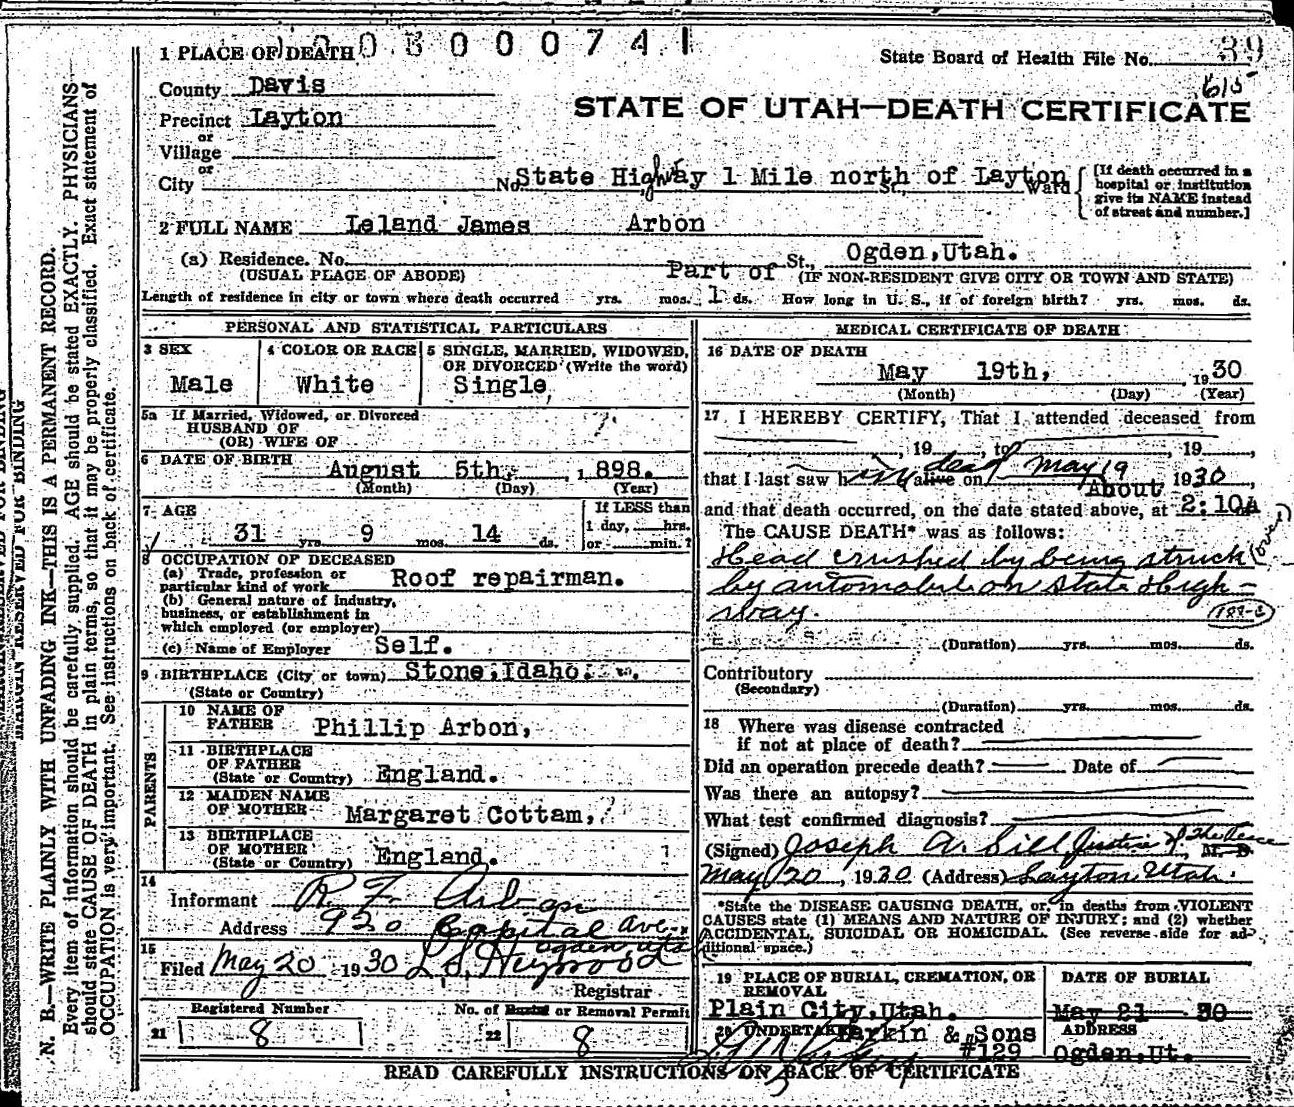 1 PLACE OF DEATH
0 0 3 0 0 0 7 4 1
State Board of Health File No. 39
615
County Davis
STATE OF UTAH—DEATH CERTIFICATE
Precinct Layton
or
Village
or
City
No. State Highway 1 Mile north of Layton St. Ward
[If death occurred in a hospital or institution give its NAME instead of street and number.]
2 FULL NAME Leland James Arbon
(a) Residence. No. St., Ogden, Utah.
(USUAL PLACE OF ABODE) (IF NON-RESIDENT GIVE CITY OR TOWN AND STATE)
Part of
Length of residence in city or town where death occurred yrs. mos. 1 ds. How long in U. S., if of foreign birth? yrs. mos. ds.
PERSONAL AND STATISTICAL PARTICULARS
3 SEX
Male
4 COLOR OR RACE
White
5 SINGLE, MARRIED, WIDOWED, OR DIVORCED (Write the word)
Single,
5a If Married, Widowed, or Divorced
HUSBAND OF
(OR) WIFE OF
6 DATE OF BIRTH
August 5th, 1898.
(Month) (Day) (Year)
7 AGE
31 yrs. 9 mos. 14 ds.
If LESS than
1 day, hrs.
or min.?
8 OCCUPATION OF DECEASED
(a) Trade, profession or
particular kind of work Roof repairman.
(b) General nature of industry,
business, or establishment in
which employed (or employer)
(c) Name of Employer Self.
9 BIRTHPLACE (City or town) Stone, Idaho.
(State or Country)
PARENTS
10 NAME OF
FATHER Phillip Arbon,
11 BIRTHPLACE
OF FATHER
(State or Country) England.
12 MAIDEN NAME
OF MOTHER Margaret Cottam,
13 BIRTHPLACE
OF MOTHER
(State or Country) England.
14
Informant R. F. Arbon
Address 920 Capital Ave.
Ogden Utah
15
Filed May 20 1930 L. S. Heywood
Registrar
Registered Number
21 8
No. of Burial or Removal Permit
22 8
MEDICAL CERTIFICATE OF DEATH
16 DATE OF DEATH
May 19th, 1930
(Month) (Day) (Year)
17 I HEREBY CERTIFY, That I attended deceased from
, 19 , to , 19 ,
that I last saw him alive on dead May 19 1930,
About
and that death occurred, on the date stated above, at 2:10A
The CAUSE DEATH* was as follows:
Head crushed by being struck (over)
by automobile on State High-
way.
188-c
(Duration) yrs. mos. ds.
Contributory
(Secondary)
(Duration) yrs. mos. ds.
18 Where was disease contracted
if not at place of death?
Did an operation precede death? Date of
Was there an autopsy?
What test confirmed diagnosis?
(Signed) Joseph A. Sill Justice of The Peace M. D.
May 20, 1930 (Address) Layton Utah.
*State the DISEASE CAUSING DEATH, or, in deaths from VIOLENT
CAUSES state (1) MEANS AND NATURE OF INJURY; and (2) whether
ACCIDENTAL, SUICIDAL OR HOMICIDAL. (See reverse side for ad-
ditional space.)
19 PLACE OF BURIAL, CREMATION, OR
REMOVAL
Plain City, Utah.
DATE OF BURIAL
May 21 30
20 UNDERTAKER Larkin & Sons
#129
ADDRESS
Ogden, Ut.
READ CAREFULLY INSTRUCTIONS ON BACK OF CERTIFICATE
MARGIN RESERVED FOR BINDING
N. B.—WRITE PLAINLY WITH UNFADING INK—THIS IS A PERMANENT RECORD.
Every item of information should be carefully supplied. AGE should be stated EXACTLY. PHYSICIANS
should state CAUSE OF DEATH in plain terms, so that it may be properly classified. Exact statement of
OCCUPATION is very important. See instructions on back of certificate.